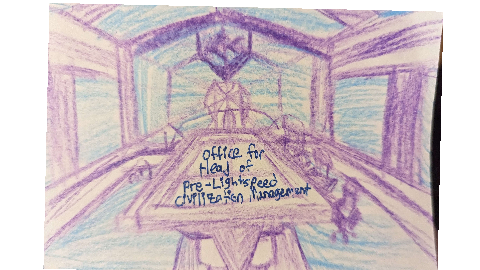 Office for
Head of
Pre-Lightspeed
civilization Management